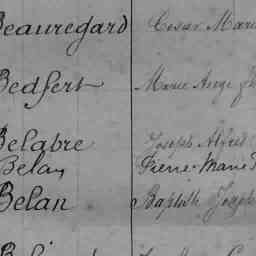 Beauregard Cesar Marie
Bedfert Marie Ange
Belabre Joseph Alfred
Belay Pierre-Marie
Belan Baptiste Joseph